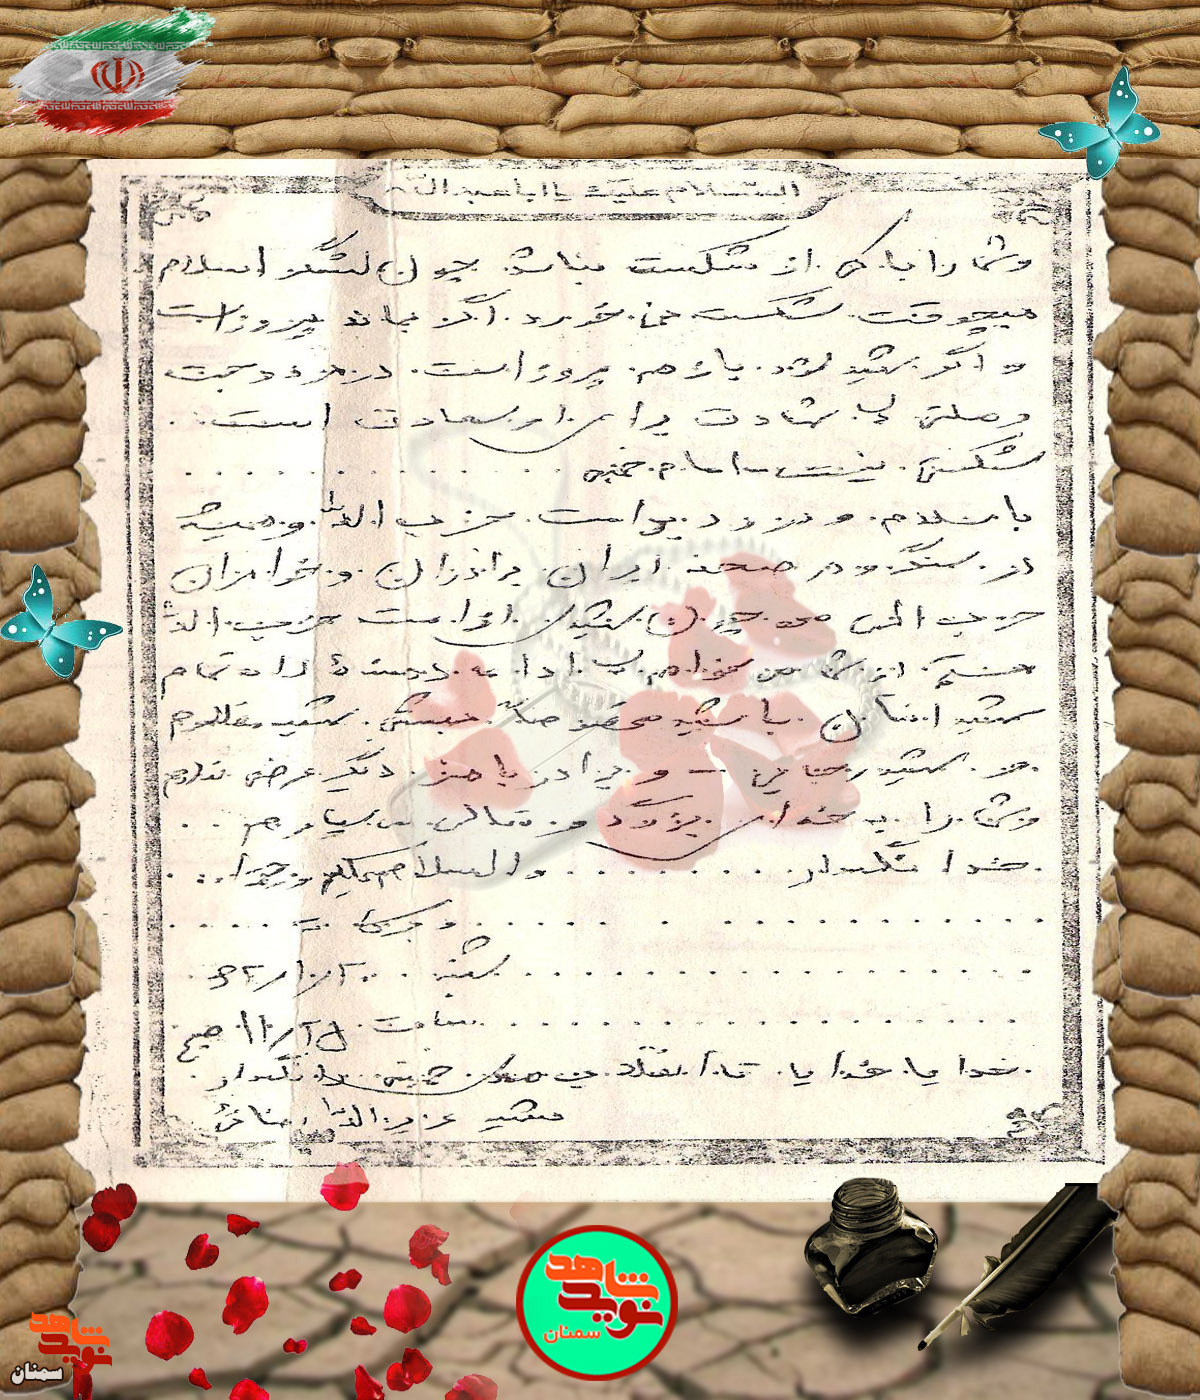 السلام علیک یا اباعبدالله
و شما را باکی از شکست نباشد چون لشگر اسلام
هیچوقت شکست نمی خورد. اگر بماند پیروز است
و اگر شهید شد. باز هم. پیروز است. در
شهادت برای او سعادت است.
شکستی. نیست امام خمینی
با سلام. و درود بر امت. حزب الله و همیشه
در. سنگر و در صحنه ایران. برادران و خواهران
حزب اللهی چون شهیدی از امت حزب الله
هستم. از شما می خواهم به ادامه دهنده راه تمام
شهیدانمان. باشید مخصوصاً. بهشتی. شهید مظلوم
و. شهید رجائی - و برادر باهنر. دیگر عرضی ندارم
و شما را به خدای بزرگ و متعالی می سپارم
خدا نگهدار. والسلام علیکم و رحمة ا...
و برکاته
شنبه ۶۲/۱۰/۲۰
ساعت ۱۱/۲۵ صبح
خدایا. خدایا. تا انقلاب مهدی خمینی را نگهدار
شهید عزیزالله رضائی
شاهد
نوید
سمنان
شاهد
نوید
سمنان